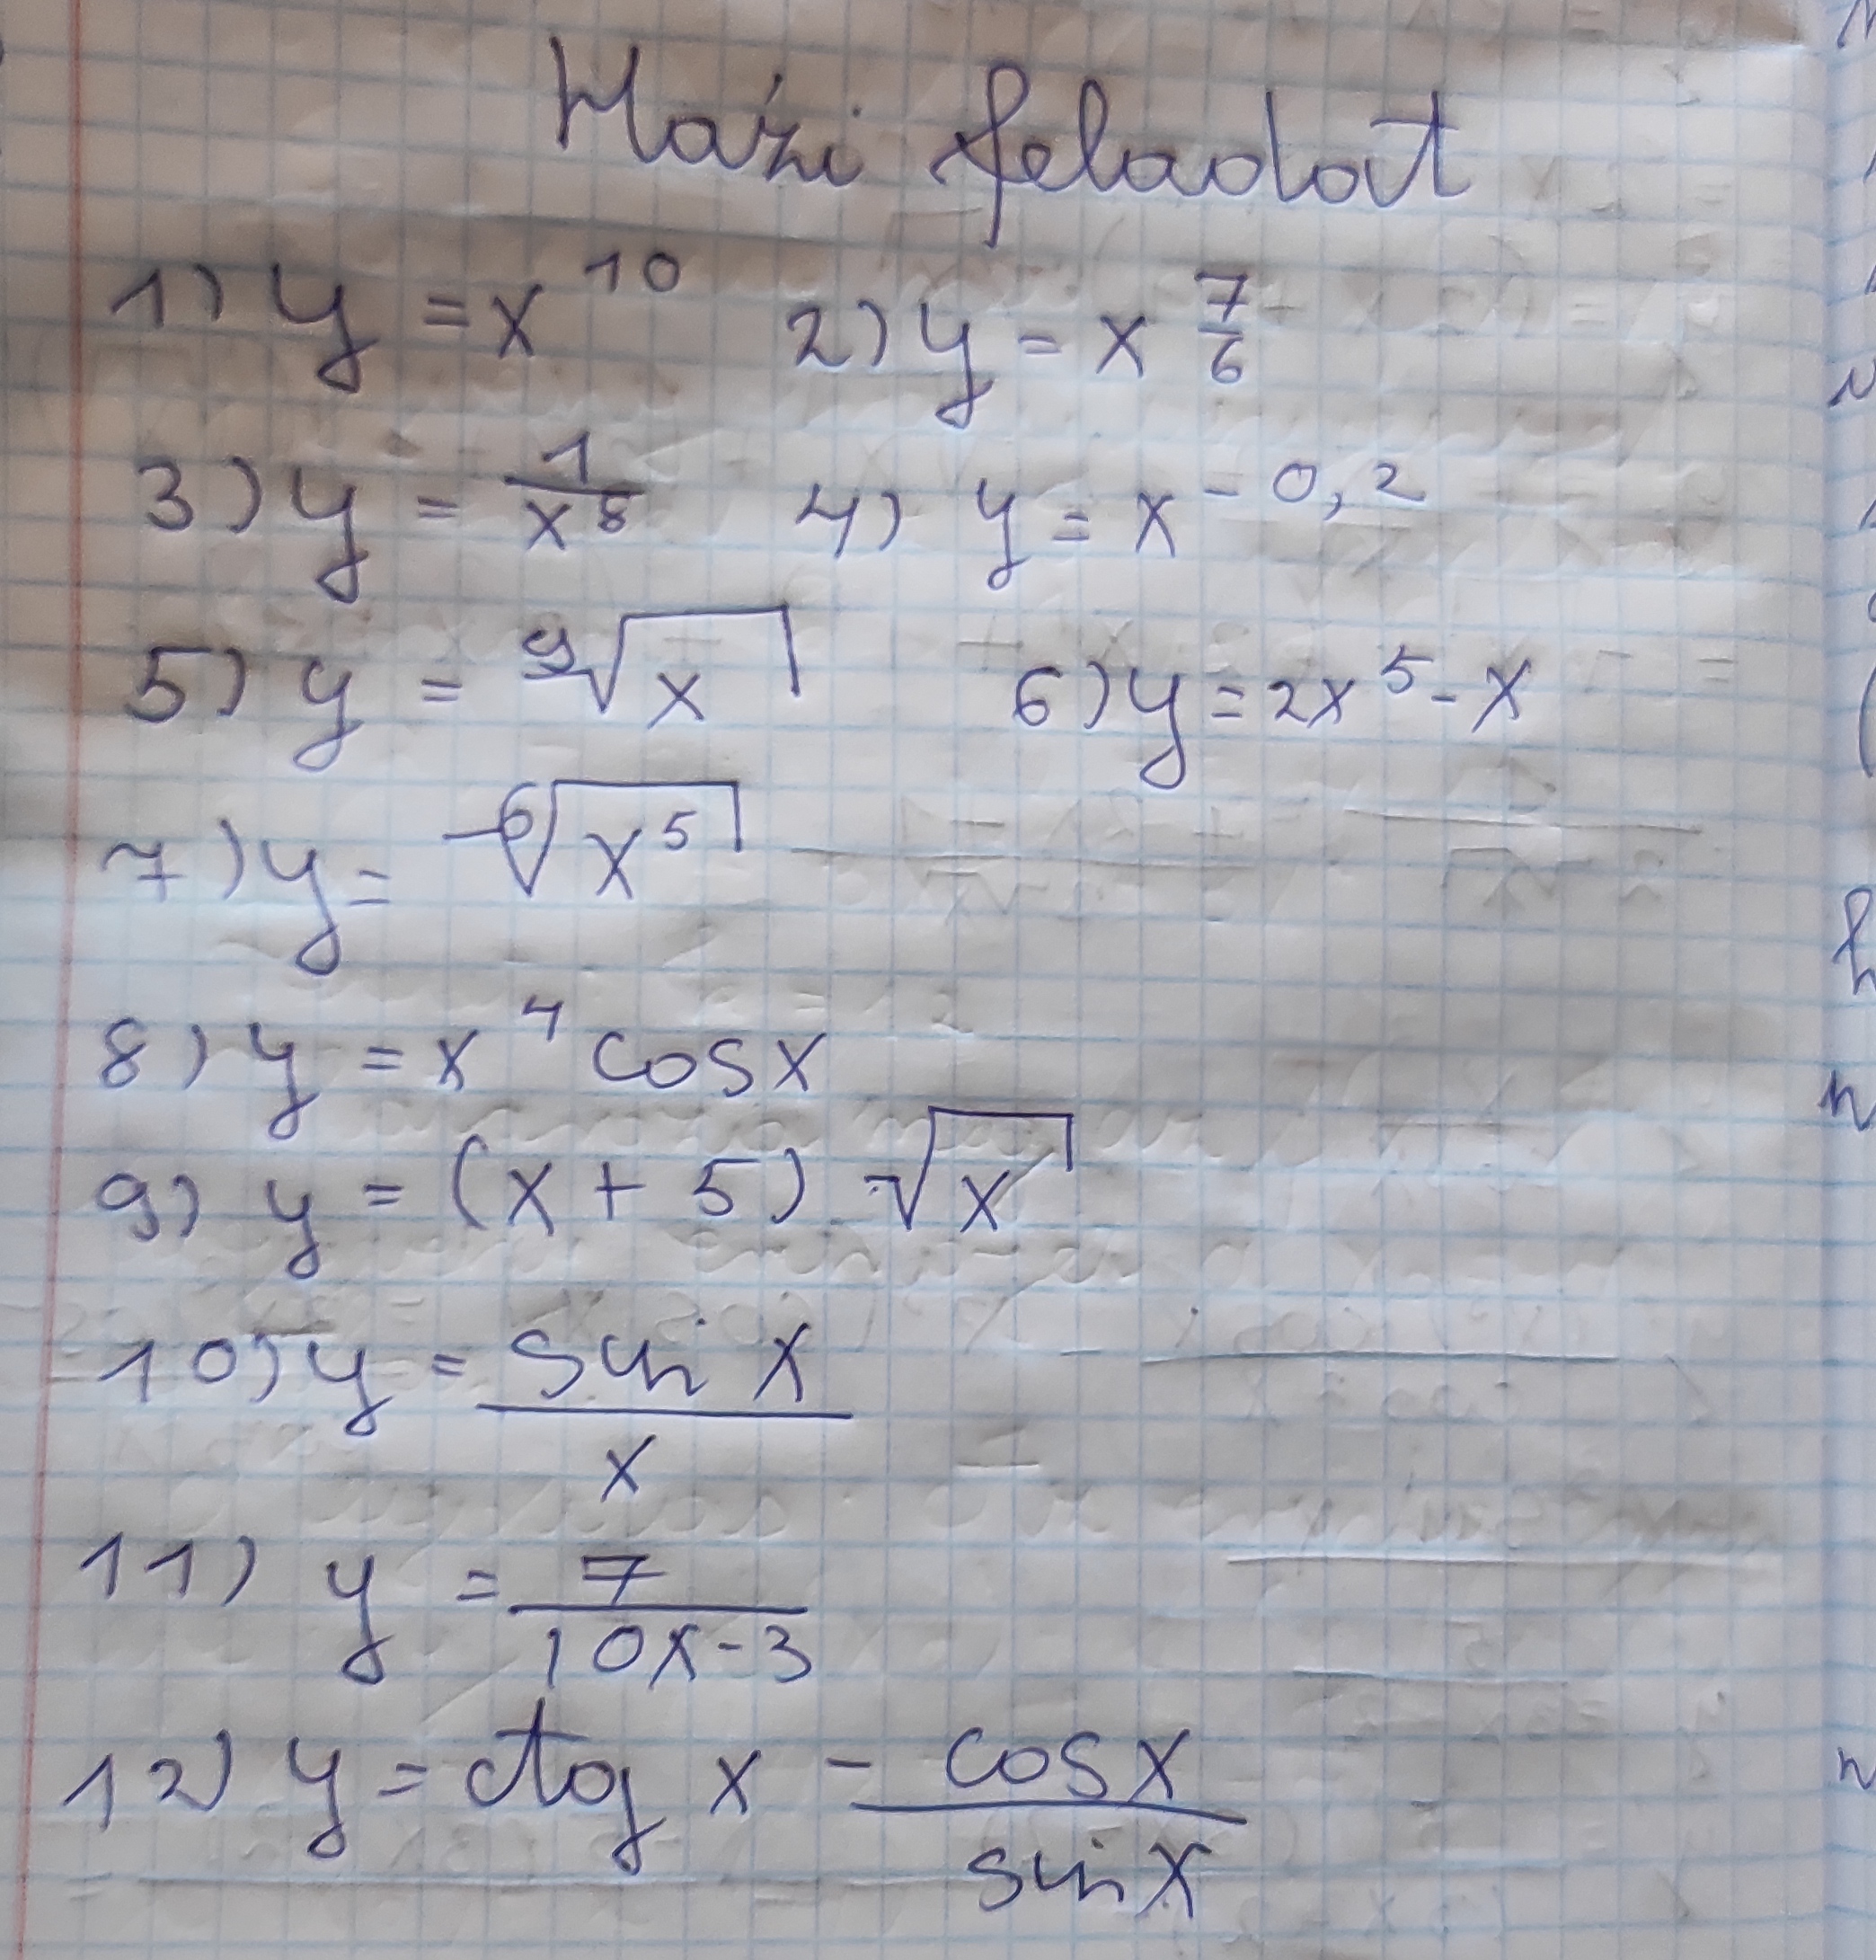 Házi feladat
1) y = x^10 2) y = x^(7/6)
3) y = 1/x^8 4) y = x^-0,2
5) y = ⁹√x 6) y = 2x^5 - x
7) y = ⁻⁶√x^5
8) y = x^4 cosx
9) y = (x + 5) √x
10) y = sin x / x
11) y = 7 / (10x-3)
12) y = ctg x - cosx / sinx